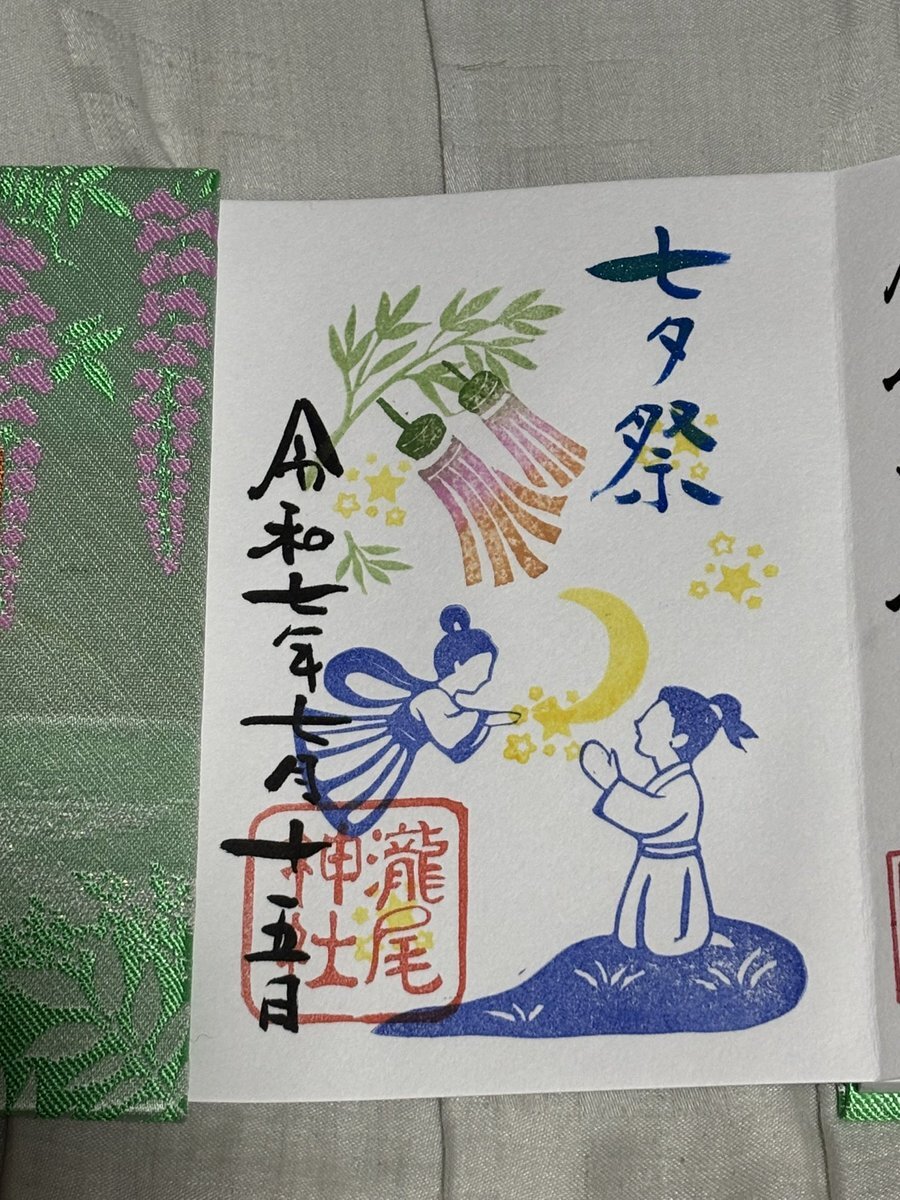 七夕祭
令和七年七月十五日
瀧尾
神社